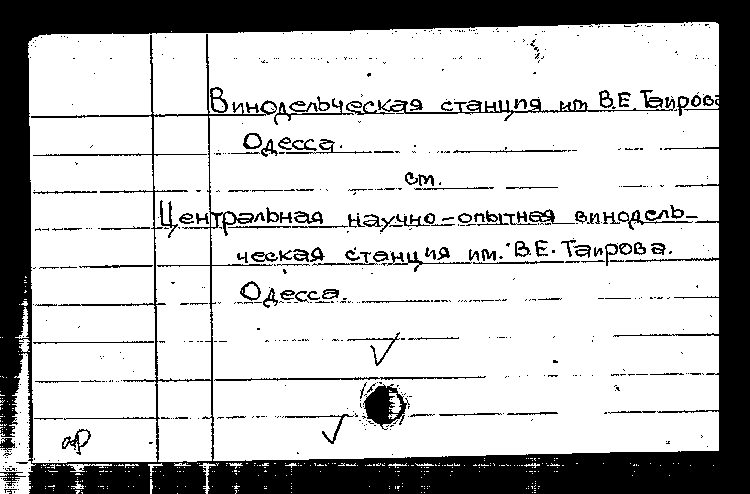 Винодельческая станция им В.Е. Таирова
Одесса.
см.
Центральная научно-опытная винодель-
ческая станция им. В.Е. Таирова.
Одесса.
ар